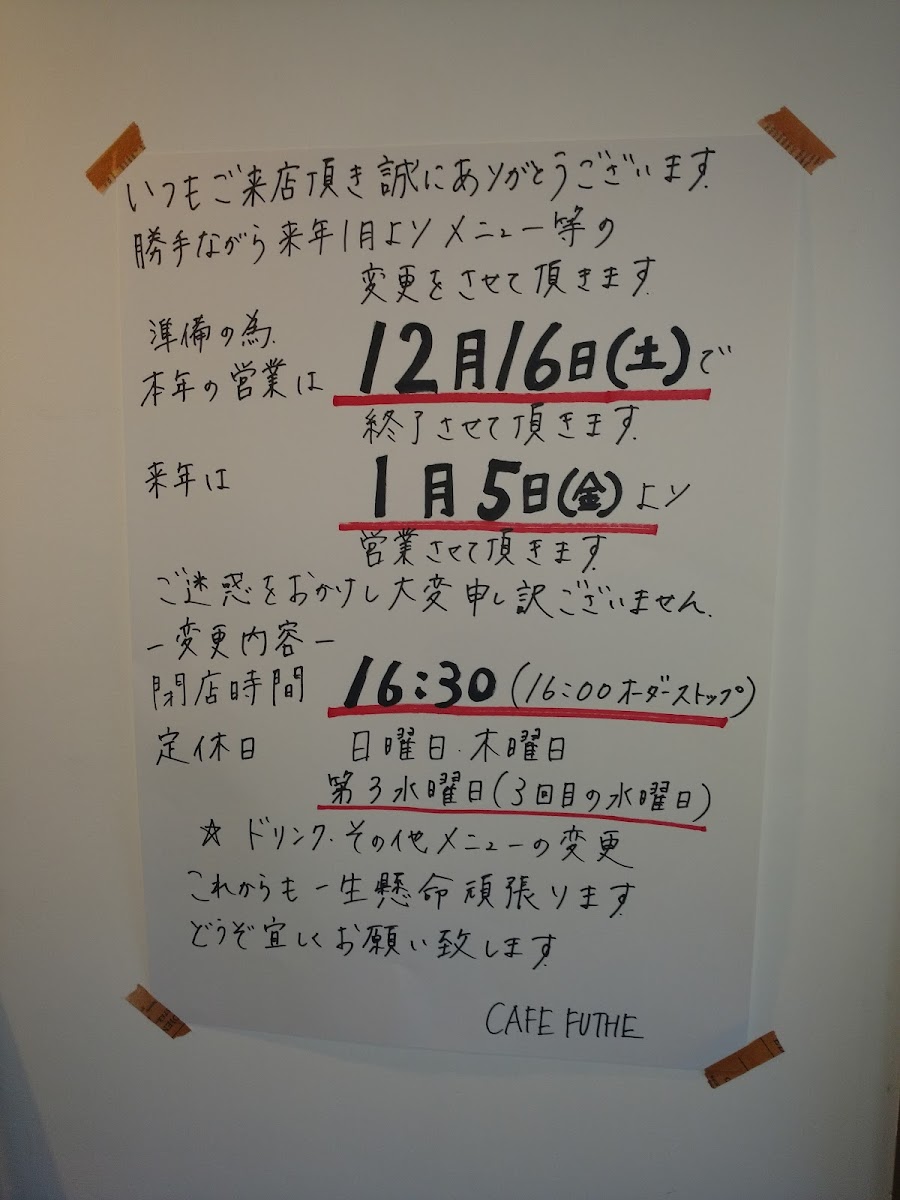 いつもご来店頂き誠にありがとうございます。
勝手ながら来年1月よりメニュー等の
変更をさせて頂きます。
準備の為、
本年の営業は 12月16日(土)で
終了させて頂きます。
来年は 1月5日(金)より
営業させて頂きます。
ご迷惑をおかけし大変申し訳ございません。
ー変更内容ー
閉店時間 16:30(16:00オーダーストップ)
定休日 日曜日・木曜日
第3水曜日(3回目の水曜日)
☆ ドリンク・その他メニューの変更
これからも一生懸命頑張ります。
どうぞ宜しくお願い致します。
CAFE FUTHE